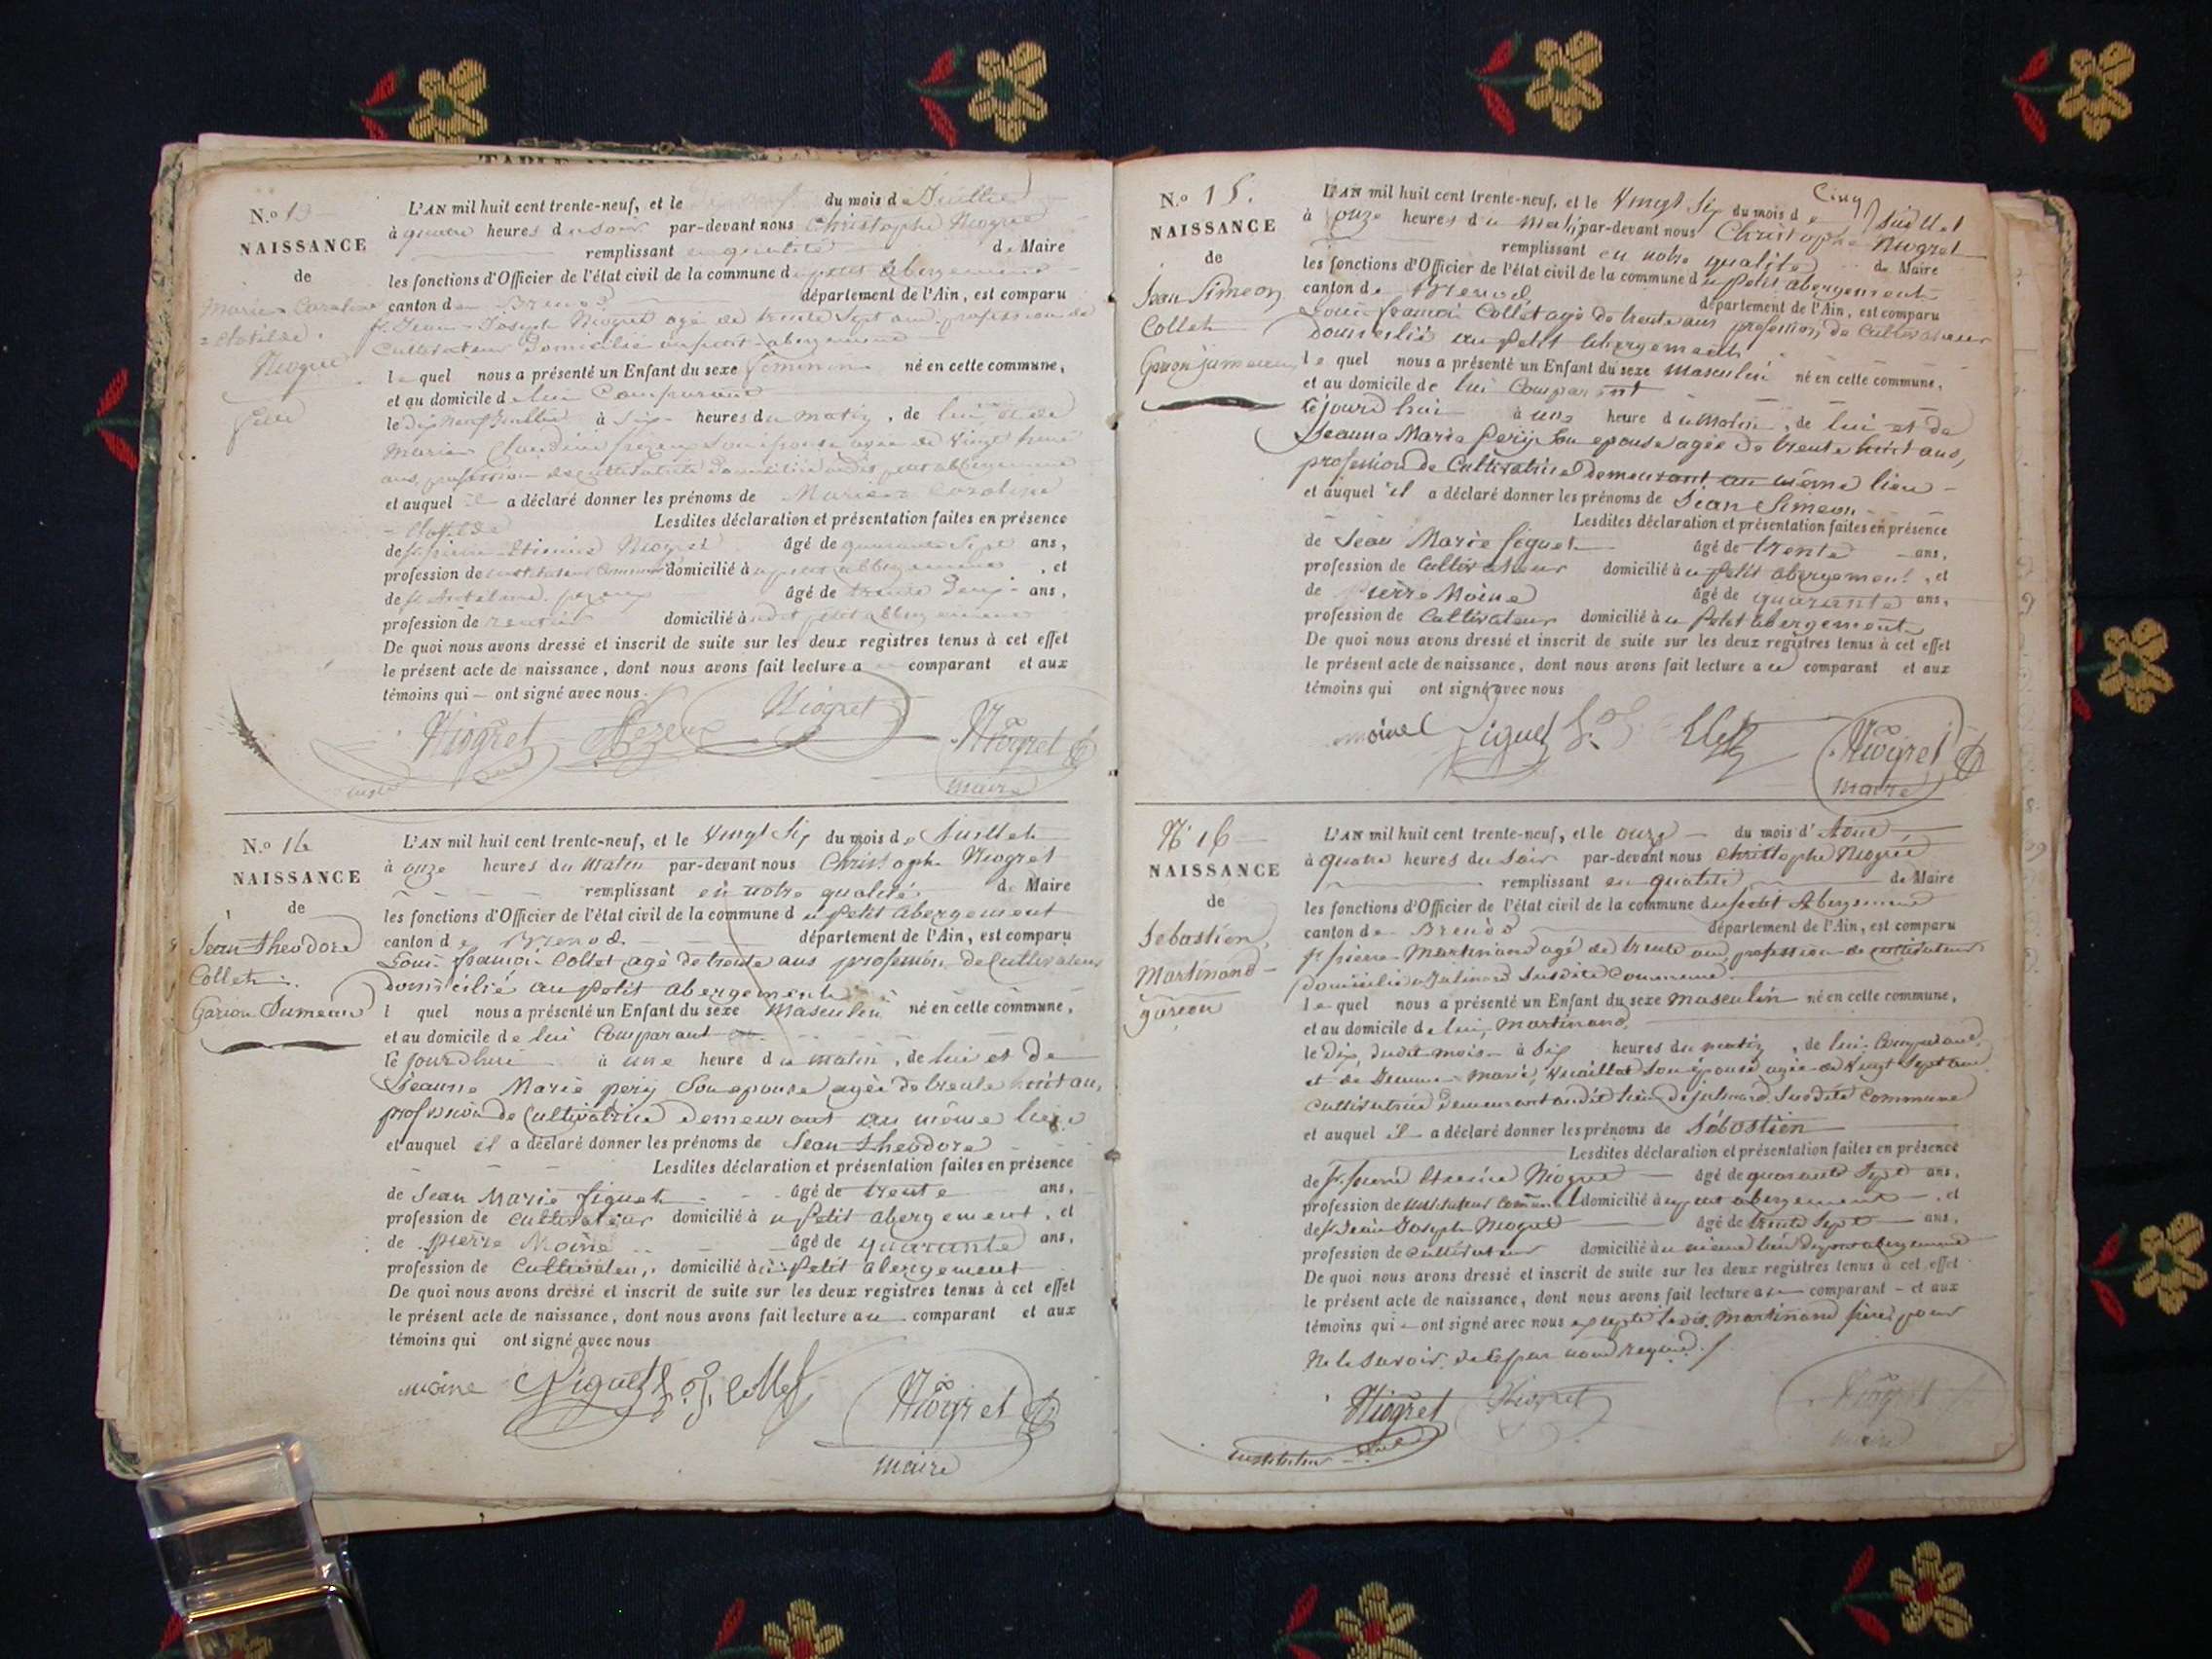 N.o 13
NAISSANCE
de
Marie Caroline
Clotilde
Niogret
fille
L'AN mil huit cent trente-neuf, et le du mois de Juillet
à quatre heures du soir par-devant nous Christophe Niogret
remplissant en qualité de Maire
les fonctions d'Officier de l'état civil de la commune du petit abergement
canton de Brenod département de l'Ain, est comparu
sr. Jean-Joseph Niogret agé de trente sept ans profession de
Cultivateur domicilié au petit abergement
lequel nous a présenté un Enfant du sexe feminin né en cette commune,
et au domicile de lui Comparant
le dix neuf Juillet à six heures du matin, de lui et de
Marie Claudine son épouse agée de vingt
ans, profession de cultivatrice domiciliée audit petit abergement
et auquel il a déclaré donner les prénoms de Marie Caroline
Clotilde Lesdites déclaration et présentation faites en présence
de sr. pierre Etienne Niogret âgé de quarante sept ans,
profession de instituteur communal domicilié au petit abergement, et
de sr. âgé de trente deux ans,
profession de rentier domicilié audit petit abergement
De quoi nous avons dressé et inscrit de suite sur les deux registres tenus à cet effet
le présent acte de naissance, dont nous avons fait lecture au comparant et aux
témoins qui ont signé avec nous.
Niogret Niogret Niogret
maire
N.o 14
NAISSANCE
de
Jean Theodore
Collet
Garçon Jumeau
L'AN mil huit cent trente-neuf, et le vingt Six du mois de Juillet
à onze heures du matin par-devant nous Christophe Niogret
remplissant en notre qualité de Maire
les fonctions d'Officier de l'état civil de la commune du petit abergement
canton de Brenod département de l'Ain, est comparu
Louis françois Collet agé de trente ans profession de Cultivateur
domicilié au petit abergement
l quel nous a présenté un Enfant du sexe Masculin né en cette commune,
et au domicile de lui Comparant
ce jourdhui à une heure du matin, de lui et de
Jeanne Marie pery Son epouse agée de trente huit ans,
profession de Cultivatrice demeurant au même lieu
et auquel il a déclaré donner les prénoms de Jean theodore
Lesdites déclaration et présentation faites en présence
de Jean Marie figuet âgé de trente ans,
profession de cultivateur domicilié au petit abergement, et
de pierre Moine âgé de quarante ans,
profession de Cultivateur domicilié au petit abergement
De quoi nous avons dressé et inscrit de suite sur les deux registres tenus à cet effet
le présent acte de naissance, dont nous avons fait lecture au comparant et aux
témoins qui ont signé avec nous
moine figuet L. F. Collet Niogret
maire
N.o 15.
NAISSANCE
de
Jean Simeon
Collet
Garçon jumeau
L'AN mil huit cent trente-neuf, et le vingt Six du mois de Juillet
à onze heures du matin par-devant nous Christophe Niogret
remplissant en notre qualité de Maire
les fonctions d'Officier de l'état civil de la commune du petit abergement
canton de Brenod département de l'Ain, est comparu
Louis françois Collet agé de trente ans profession de Cultivateur
domicilié au petit abergement
le quel nous a présenté un Enfant du sexe Masculin né en cette commune,
et au domicile de lui Comparant
ce jourd'hui à une heure du matin, de lui et de
Jeanne Marie pery Son epouse agée de trente huit ans,
profession de Cultivatrice demeurant au même lieu
et auquel il a déclaré donner les prénoms de Jean Simeon
Lesdites déclaration et présentation faites en présence
de Jean Marie figuet âgé de trente ans,
profession de Cultivateur domicilié au petit abergement, et
de Pierre Moine âgé de quarante ans,
profession de Cultivateur domicilié au petit abergement
De quoi nous avons dressé et inscrit de suite sur les deux registres tenus à cet effet
le présent acte de naissance, dont nous avons fait lecture au comparant et aux
témoins qui ont signé avec nous
moine figuet Niogret
maire
N.o 16
NAISSANCE
de
Sebastien
Martinand
garçon
L'AN mil huit cent trente-neuf, et le onze du mois d'Aout
à quatre heures du soir par-devant nous Christophe Niogret
remplissant en qualité de Maire
les fonctions d'Officier de l'état civil de la commune du petit Abergement
canton de Brenod département de l'Ain, est comparu
sr. pierre Martinand agé de trente ans, profession de cultivateur
domicilié à Jalinard Susdite Commune
lequel nous a présenté un Enfant du sexe masculin né en cette commune,
et au domicile de lui, Martinand,
le dix dudit mois à six heures du matin, de lui Comparant
et de Jeanne Marie Son épouse agée de vingt Sept ans
cultivatrice demeurant audit lieu de jalinard Susdite Commune
et auquel il a déclaré donner les prénoms de Sébastien
Lesdites déclaration et présentation faites en présence
de sr. pierre Etienne Niogret âgé de quarante Sept ans,
profession de instituteur communal domicilié au petit abergement, et
de sr. Jean Joseph Niogret âgé de trente Sept ans,
profession de cultivateur domicilié au même lieu du petit abergement
De quoi nous avons dressé et inscrit de suite sur les deux registres tenus à cet effet
le présent acte de naissance, dont nous avons fait lecture au comparant et aux
témoins qui ont signé avec nous excepté ledit Martinand père pour
Ne le Savoir, de ce par nous requis.
Niogret Niogret Niogret
instituteur maire